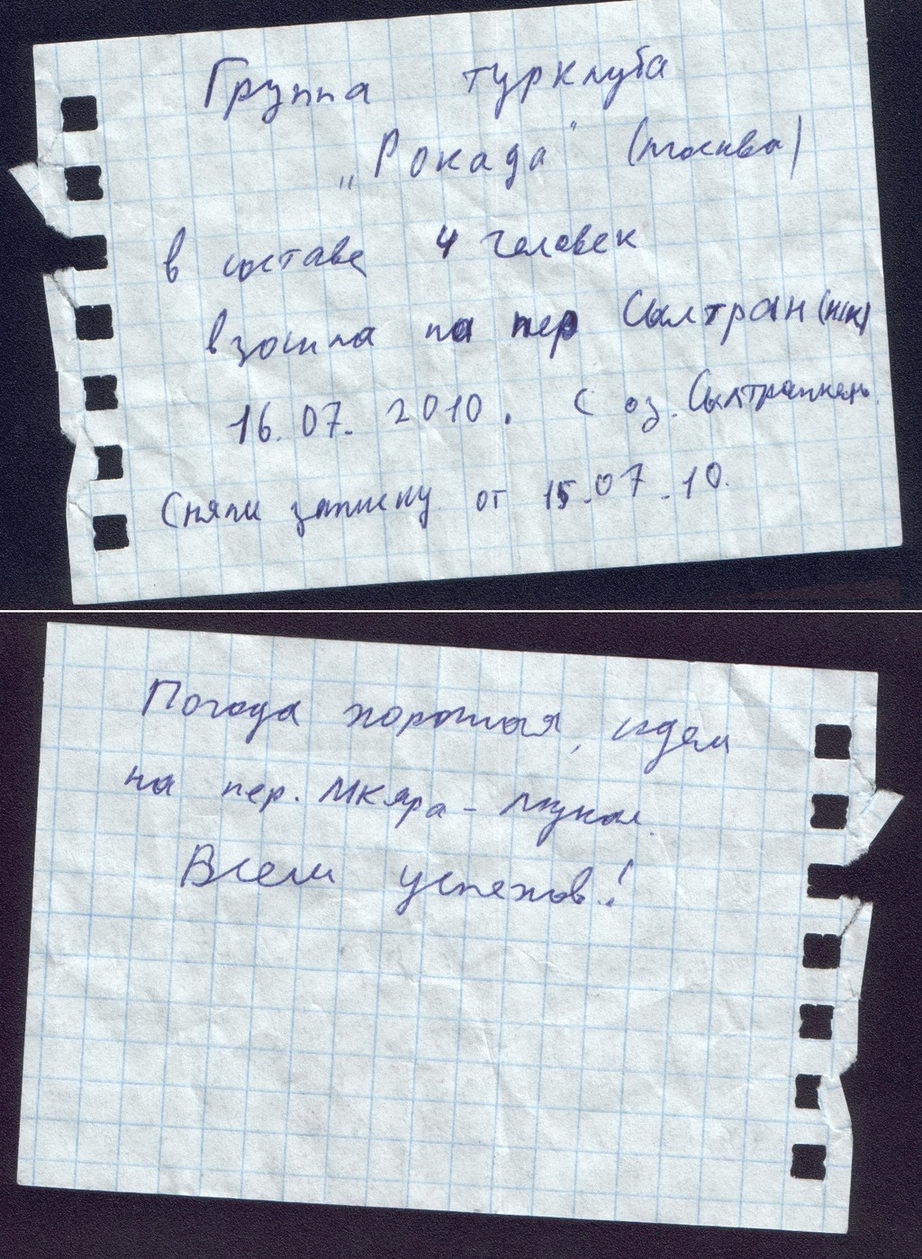 Группа турклуба
„Рокада" (Москва)
в составе 4 человек
взошла на пер Сылтран (нк)
16.07. 2010. С оз. Сылтранкель.
Сняли записку от 15.07.10.
Погода хорошая, идем
на пер. Мкяра-
Всем успехов!